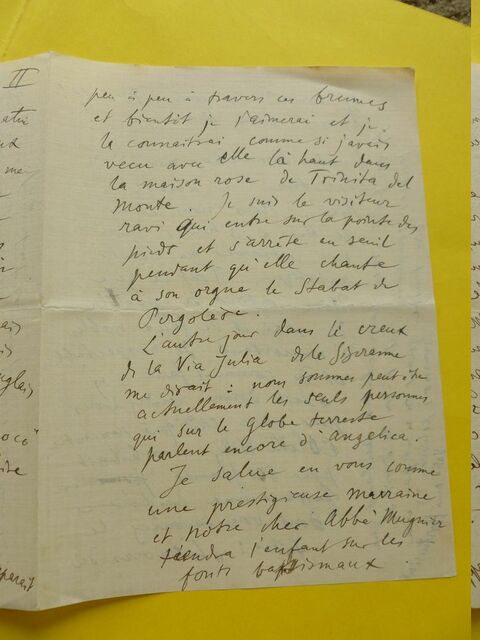 II
peu à peu à travers ces brumes
et bientôt je l'aimerai et je
la connaitrai comme si j'avais
vécu avec elle là haut dans
la maison rose de Trinita del
Monte. Je suis le visiteur
ravi qui entre sur la pointe des
pieds et s'arrête en seuil
pendant qu'elle chante
à son orgue le Stabat de
Pergolese.
L'autre jour dans le creux
de la Via Julia
me disait : nous sommes peut être
actuellement les seuls personnes
qui sur le globe terrestre
parlent encore d'Angelica.
Je salue en vous comme
une prestigieuse marraine
et notre cher Abbé Mugnier
tiendra l'enfant sur les
fonts baptismaux.
me